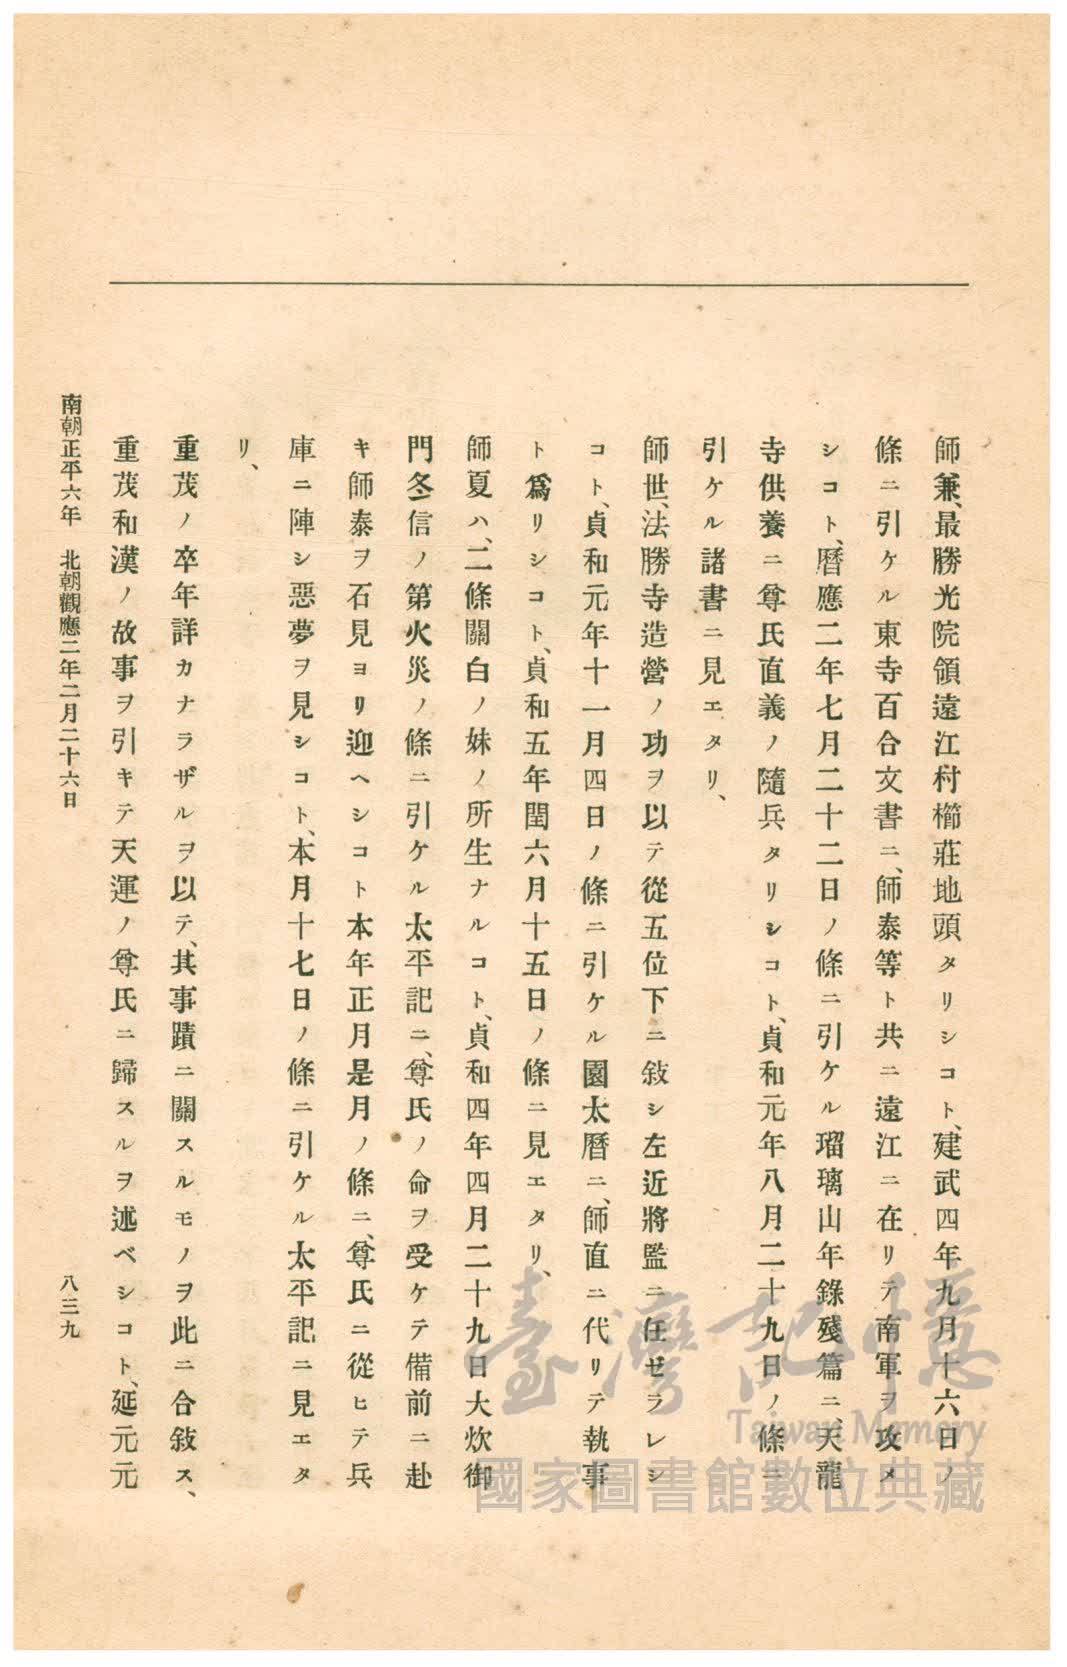 師兼、最勝光院領遠江村櫛莊地頭タリシコト、建武四年九月十六日ノ
條ニ引ケル東寺百合文書ニ、師泰等ト共ニ遠江ニ在リテ南軍ヲ攻メ
シコト、曆應二年七月二十二日ノ條ニ引ケル瑠璃山年錄殘篇ニ、天龍
寺供養ニ尊氏直義ノ隨兵タリシコト、貞和元年八月二十九日ノ條ニ
引ケル諸書ニ見エタリ、
師世、法勝寺造營ノ功ヲ以テ從五位下ニ敍シ左近將監ニ任ゼラレシ
コト、貞和元年十一月四日ノ條ニ引ケル園太曆ニ、師直ニ代リテ執事
ト爲リシコト、貞和五年閏六月十五日ノ條ニ見エタリ、
師夏ハ、二條關白ノ妹ノ所生ナルコト、貞和四年四月二十九日大炊御
門冬信ノ第火災ノ條ニ引ケル太平記ニ、尊氏ノ命ヲ受ケテ備前ニ赴
キ師泰ヲ石見ヨリ迎ヘシコト本年正月是月ノ條ニ、尊氏ニ從ヒテ兵
庫ニ陣シ惡夢ヲ見シコト、本月十七日ノ條ニ引ケル太平記ニ見エタ
リ、
重茂ノ卒年詳カナラザルヲ以テ、其事蹟ニ關スルモノヲ此ニ合敍ス、
重茂和漢ノ故事ヲ引キテ天運ノ尊氏ニ歸スルヲ述ベシコト、延元元
南朝正平六年 北朝觀應二年二月二十六日
八三九
臺灣記憶
Taiwan Memory
國家圖書館數位典藏